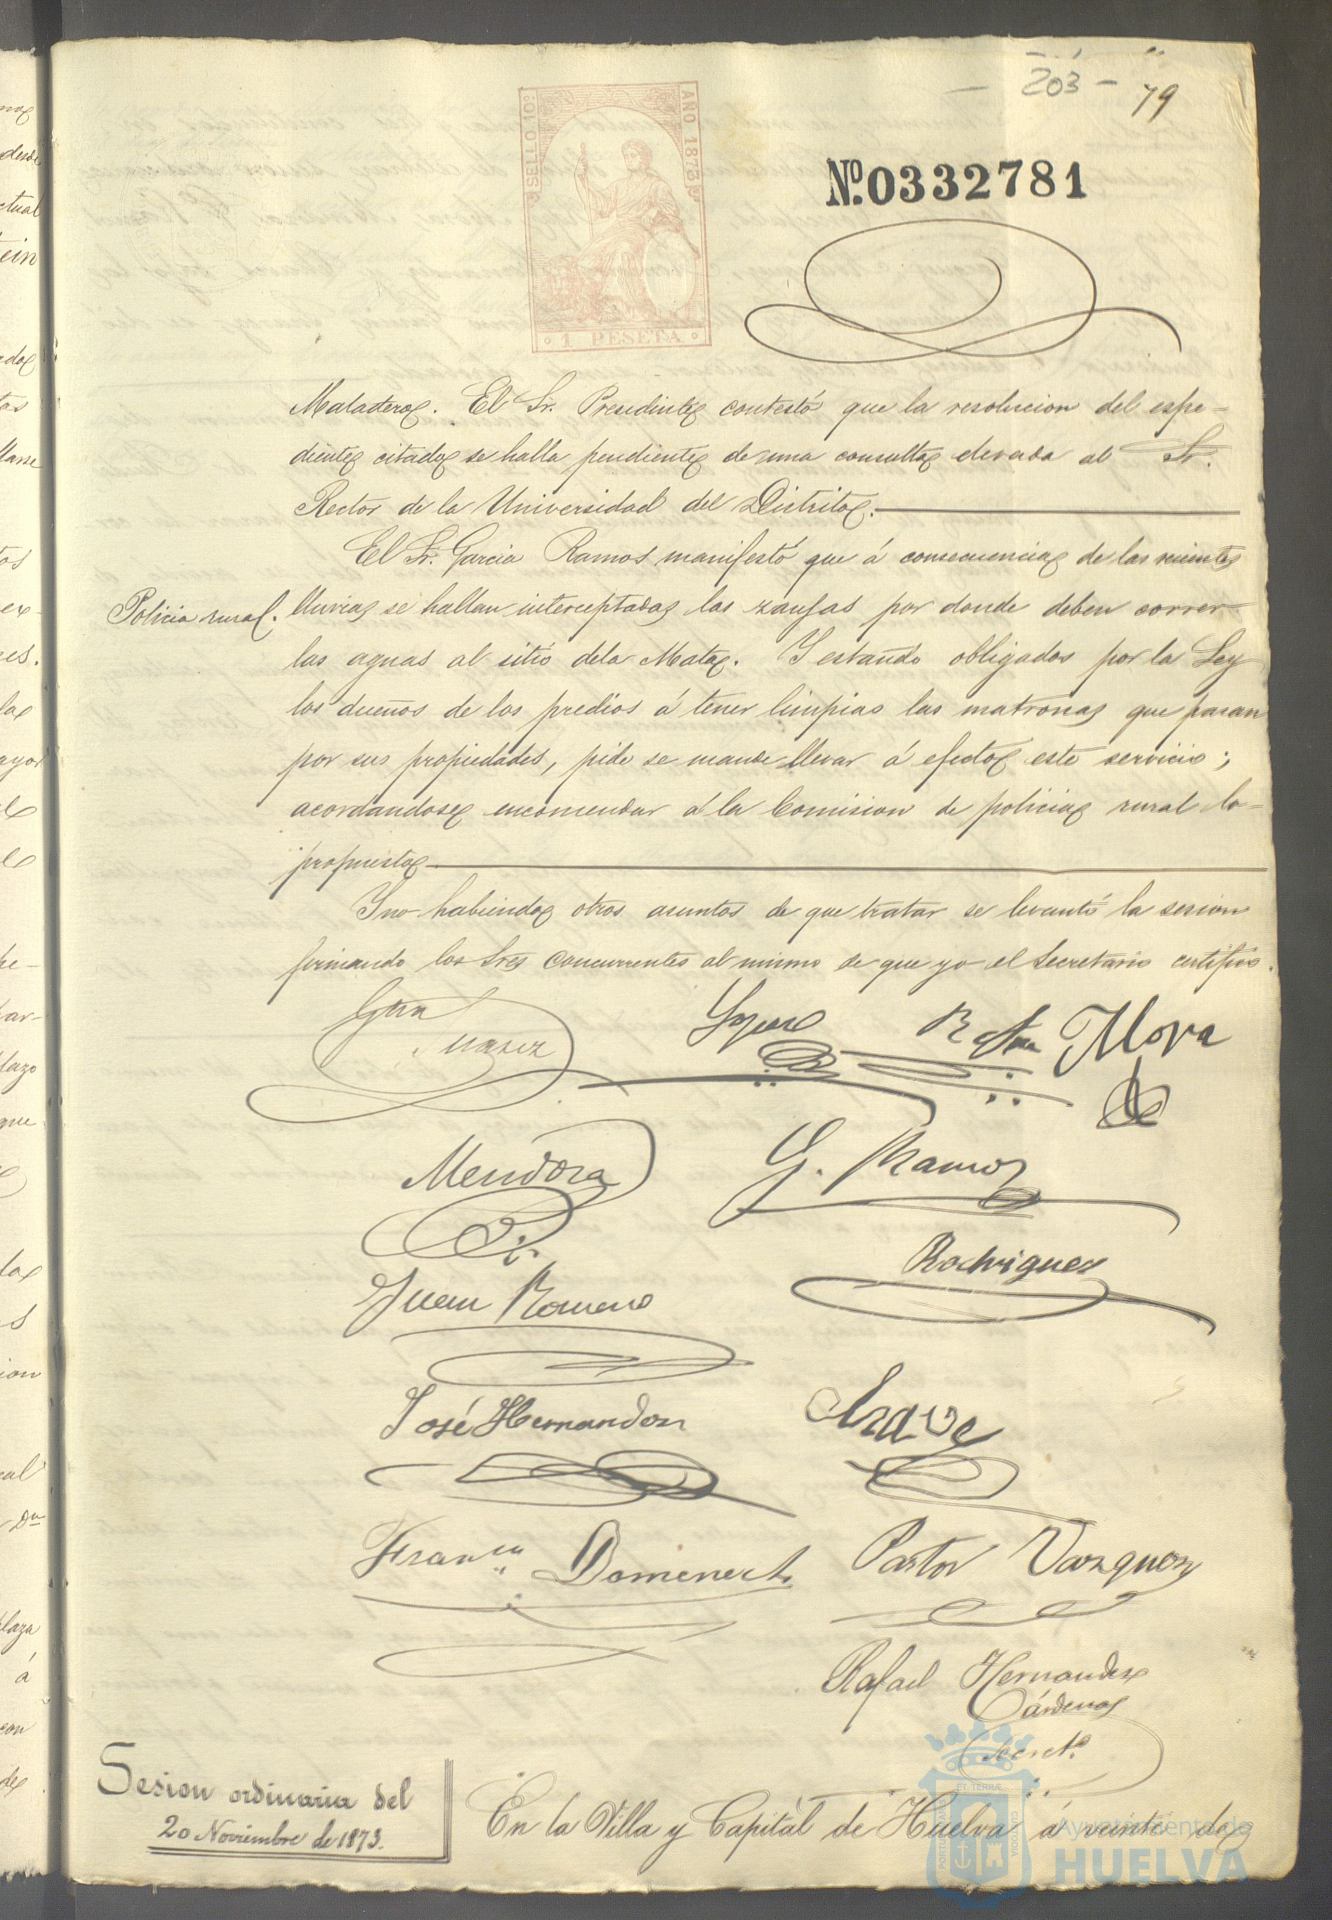 - 203 - 79
SELLO 10º
AÑO 1873
1 PESETA
Nº.0332781
Matadero. El Sr. Presidente contestó que la resolucion del espe-
diente citado se halla pendiente de una consulta elevada al Sr.
Rector de la Universidad del Distrito.
El Sr. Garcia Ramos manifestó que á consecuencia de las recientes
Policia rural.
lluvias se hallan interceptadas las zanjas por donde deben correr
las aguas al sitio dela Mata. Y estando obligados por la Ley
los dueños de los predios á tener limpias las matronas que pasan
por sus propiedades, pide se mande llevar á efecto este servicio;
acordandose encomendar á la Comision de policia rural lo
propuesto
Y no habiendo otros asuntos de que tratar se levantó la sesion
firmando los Sres concurrentes al mismo de que yo el Secretario certifico.
Mora
Mendoza
G. Ramos
Rodriguez
Juan Romero
José Hernandez
Franco Domenech
Pastor Vazquez
Rafael Hernandez
Cárdenas
Secretº
Sesion ordinaria del
20 Noviembre de 1873.
En la Villa y Capital de Huelva á veinte de
Ayuntamiento de
HUELVA